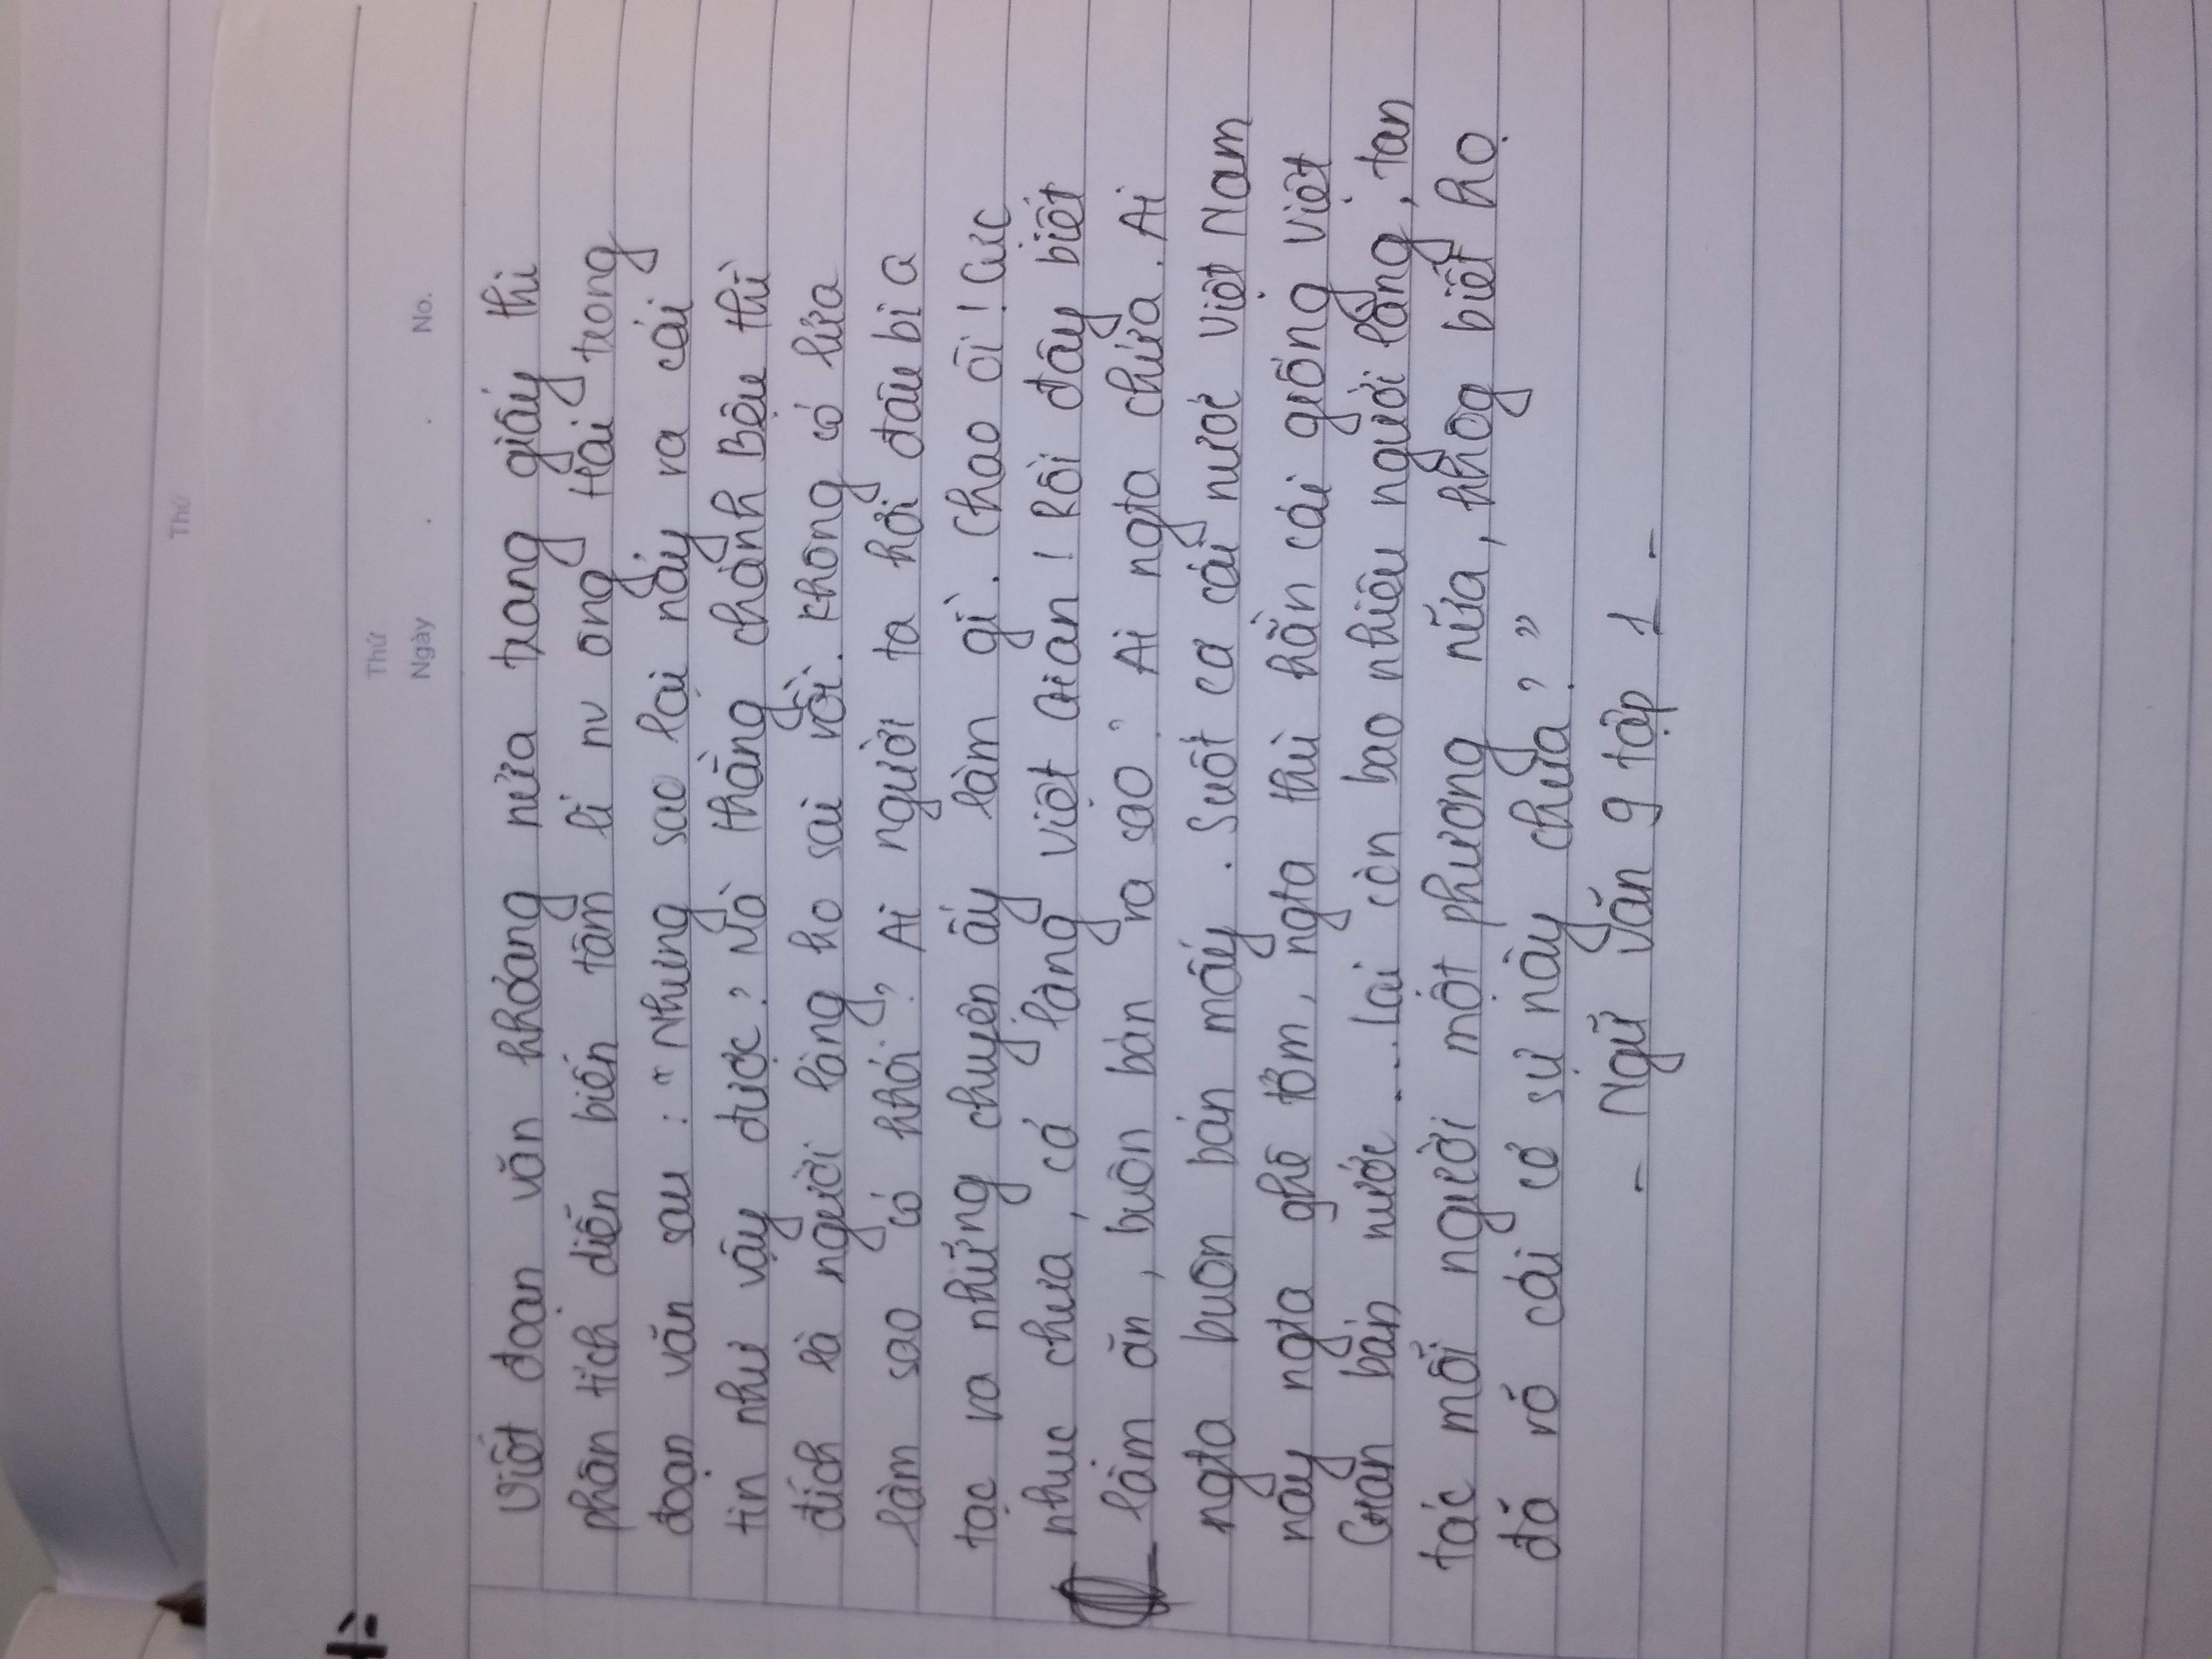 Thứ
Thứ
Ngày . . No.
Viết đoạn văn khoảng nửa trang giấy thi
phân tích diễn biến tâm lí nv ông Hai trong
đoạn văn sau : "Nhưng sao lại nảy ra cái
tin như vậy được? Mà thằng chánh Bệu thì
đích là người làng ko sai rồi. Không có lửa
làm sao có khói? Ai người ta hơi đâu bịa
tạc ra những chuyện ấy làm gì. Chao ôi! Cực
nhục chưa, cả làng Việt gian! Rồi đây biết
làm ăn, buôn bán ra sao? Ai ngta chứa. Ai
ngta buôn bán mấy. Suốt cả cái nước Việt Nam
này ngta ghê tởm, ngta thù hằn cái giống Việt
Gian bán nước... Lại còn bao nhiêu người làng, tan
tác mỗi người một phương nữa, không biết họ
đã rõ cái cơ sự này chưa?"
- Ngữ Văn 9 tập 1 -